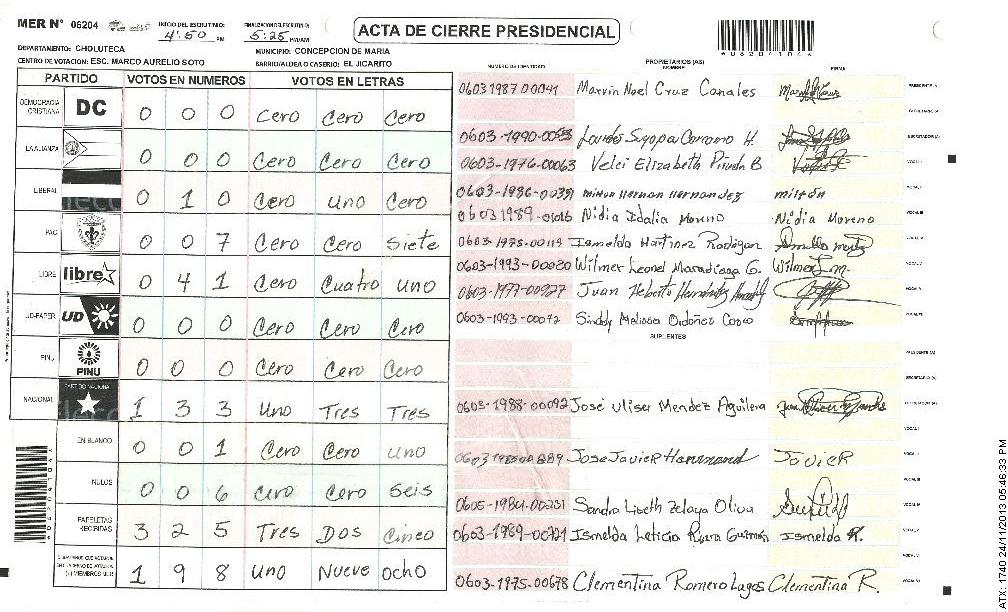 MER N° 06204 INICIO DEL ESCRUTINIO: 4:50 PM FINALIZACION DEL ESCRUTINIO: 5:25 PM/AM
ACTA DE CIERRE PRESIDENCIAL
DEPARTAMENTO: CHOLUTECA MUNICIPIO: CONCEPCION DE MARIA
CENTRO DE VOTACION: ESC. MARCO AURELIO SOTO BARRIO/ALDEA O CASERIO: EL JICARITO
PARTIDO VOTOS EN NUMEROS VOTOS EN LETRAS
DEMOCRACIA CRISTIANA DC 0 0 0 Cero Cero Cero
LA ALIANZA 0 0 0 Cero Cero Cero
LIBERAL 0 1 0 Cero Uno Cero
PAC 0 0 7 Cero Cero Siete
LIBRE libre 0 4 1 Cero Cuatro Uno
UD-FAPER UD 0 0 0 Cero Cero Cero
PINU PINU 0 0 0 Cero Cero Cero
NACIONAL PARTIDO NACIONAL 1 3 3 Uno Tres Tres
EN BLANCO 0 0 1 Cero Cero Uno
NULOS 0 0 6 Cero Cero Seis
PAPELETAS RECIBIDAS 3 2 5 Tres Dos Cinco
1 9 8 Uno Nueve Ocho
NUMERO DE IDENTIDAD PROPIETARIOS (AS) NOMBRE FIRMA
0603 1987 00041 Marvin Noel Cruz Canales PRESIDENTE (A)
SECRETARIO (A)
0603-1990- Lourdes H.
0603-1976-00063 Velci Elizabeth B VOCAL I
0603-1986- Milton Hernan Hernandez milton
0603 1989- Nidia Idalia Moreno Nidia Moreno
0603-1975-00119 Ismelda Martinez Rodriguez
0603-1993-00020 Wilmer Leonel Maradiaga G. Wilmer L.m.
0603-1977-00927 Juan Heberto Hernández
0603-1993-00072 Sinddy Melissa Ordoñez
SUPLENTES
PRESIDENTE (A)
SECRETARIO (A)
0603-1988-00092 José Uliser Mendez Aguilera
Jose Javier JavieR
Sandra Liseth Zelaya Oliva
0603-1989-00721 Ismelda Leticia Guzman Ismelda R.
0603-1975-00678 Clementina Romero Lagos Clementina R.
ATX: 1740 24/11/2013 05:46:33 PM